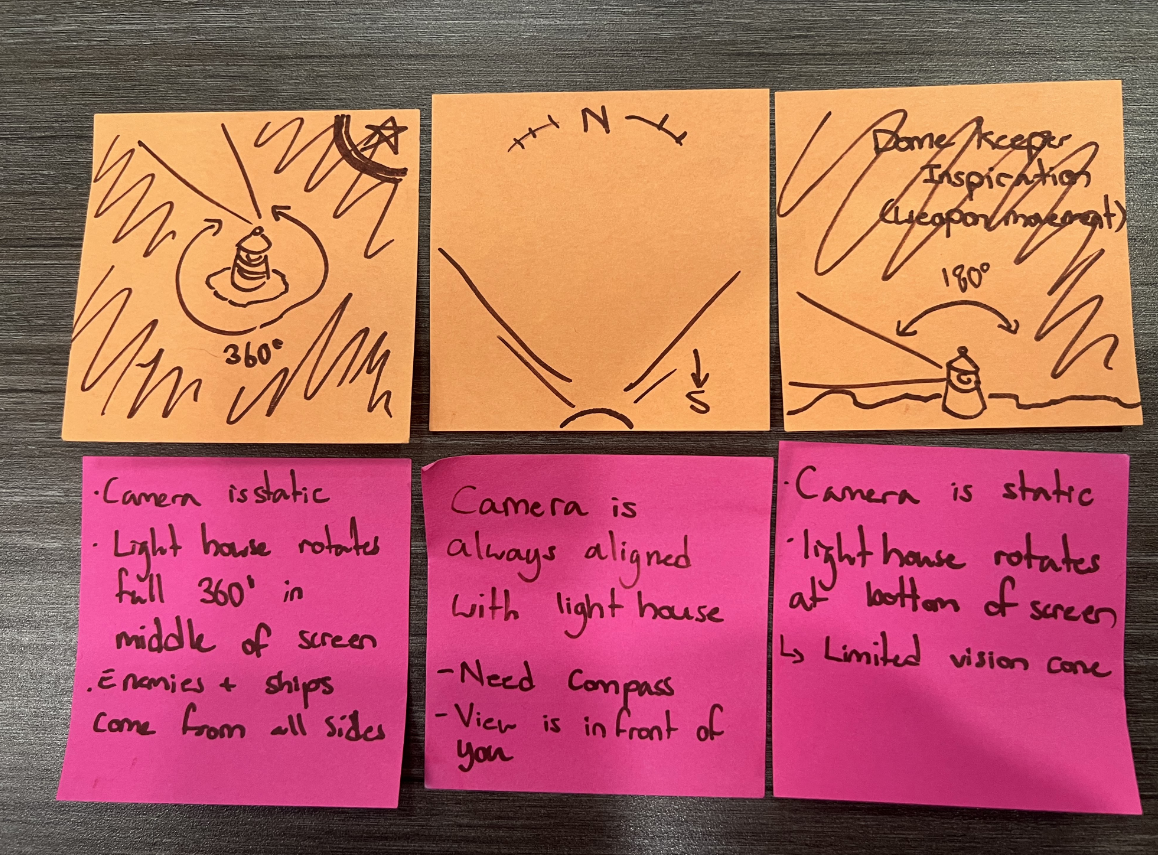 360°
N
S
Dome Keeper
Inspiration
(Weapon movement)
180°
· Camera is static
· Light house rotates
full 360° in
middle of screen
. Enemies + ships
come from all sides
Camera is
always aligned
with light house
- Need Compass
- View is in front of
you
· Camera is static
· light house rotates
at bottom of screen
↳ Limited vision cone